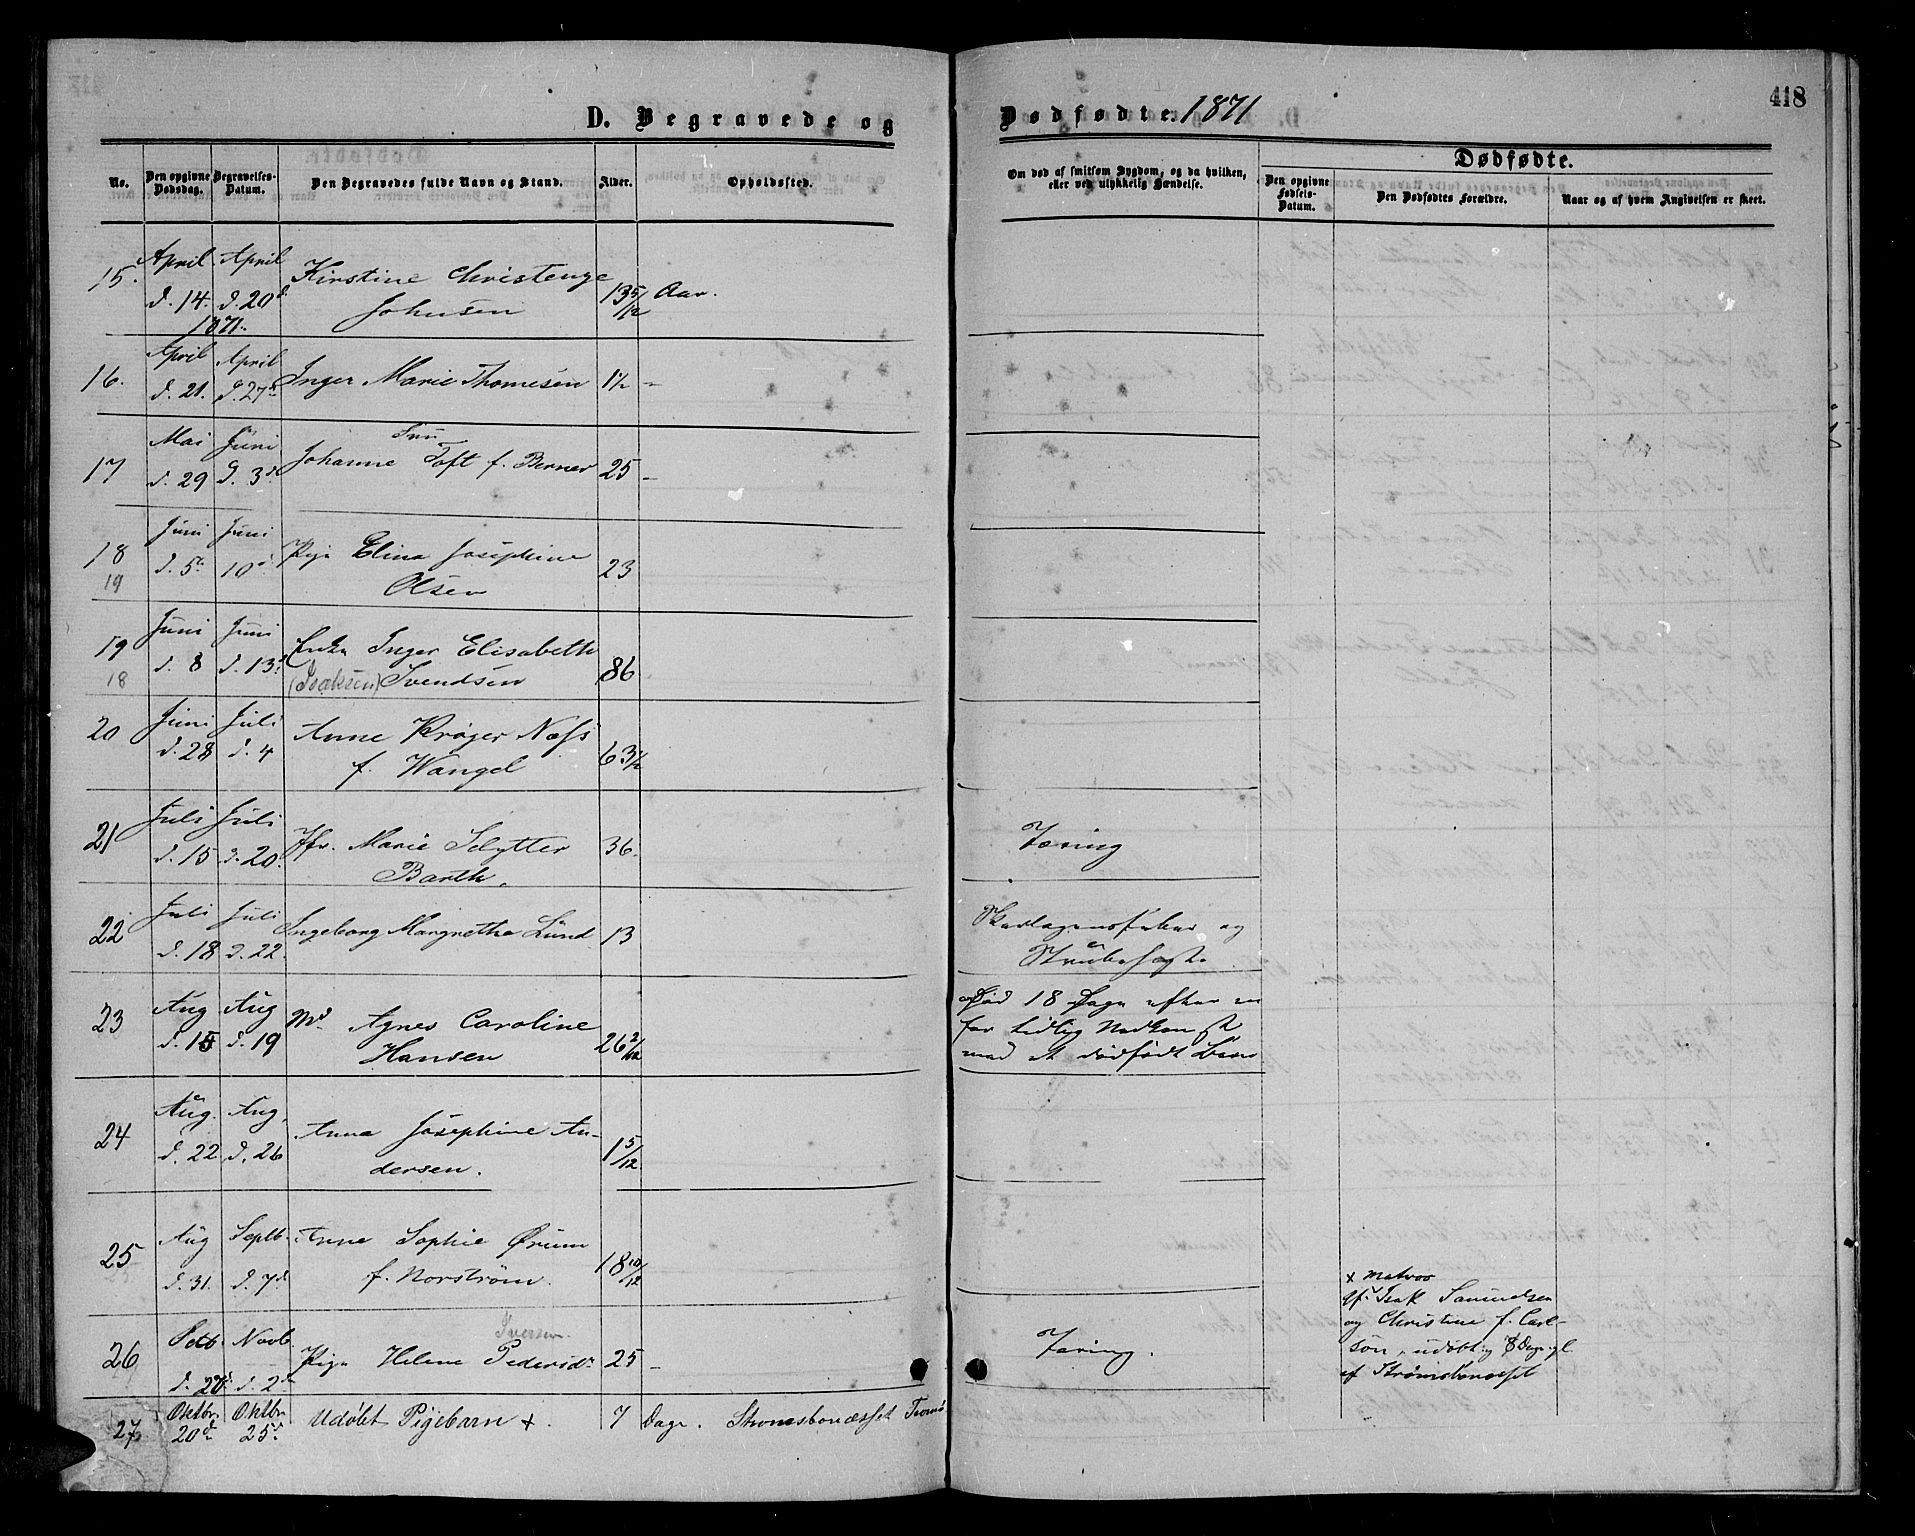 418
D. Begravede og Dødfødte. 1871
No.
Den opgivne Dødsdag.
Begravelses-Datum.
Den Begravedes fulde Navn og Stand.
Alder.
Opholdssted.
Om død af smitsom Sygdom, og da hvilken, eller ved ulykkelig Hændelse.
Dødfødte.
Den opgivne Fødsels-Datum.
Den Dødfødtes Forældre.
Naar og af hvem Angivelsen er skeet.
15. April d. 14. 1871. April d. 20d. Kirstine Christenge
Johnsen 13 5/12 Aar.
16. April d. 21. April d. 27d. Inger Marie Thomesen 1½ -
17 Mai d. 29 Juni d. 3d Fru
Johanne Toft f. Berner 25 -
18 19 Juni d. 5d Juni 10d Pige Elina Josephine
Olsen 23
19 18 Juni d. 8 Juni d. 13d Enke Inger Elisabeth
(Isaksen) Svendsen 86
20 Juni d. 28 Juli d. 4 Anne Krøger Næss
f. Wangel 63½
21 Juli d. 15 Juli d. 20. Jfr. Marie Schytter
Barth. 36. Tæring
22 Juli d. 18 Juli d. 22. Ingeborg Margrethe Lund 13 Skarlagensfeber og
Strubehoste
23 Aug d. 15 Aug d. 19 Md Agnes Caroline
Hansen 26 2/12 Død 18 Dage efter en
for tidlig Nedkomst
med et dødfødt Barn
24 Aug. d. 22 Aug. d. 26 Anna Josephine An-
dersen. 1 5/12
25 Aug d. 31. Septb. d. 7d. Anne Sophie Ørum
f. Norstrøm. 18 10/12
26 Novb. d. 2d Iversen
Pige Helene Pedersdr 25 - Tæring.
27 Oktbr. 20d Oktbr. 25d Udøbt Pigebarn x. 7 Dage. Stromsbonæsset Tromø
x
Isak Samuelsen
og Christine f. Carl-
son, udøbt, 8 Dage gl.
af Strømsbonæsset